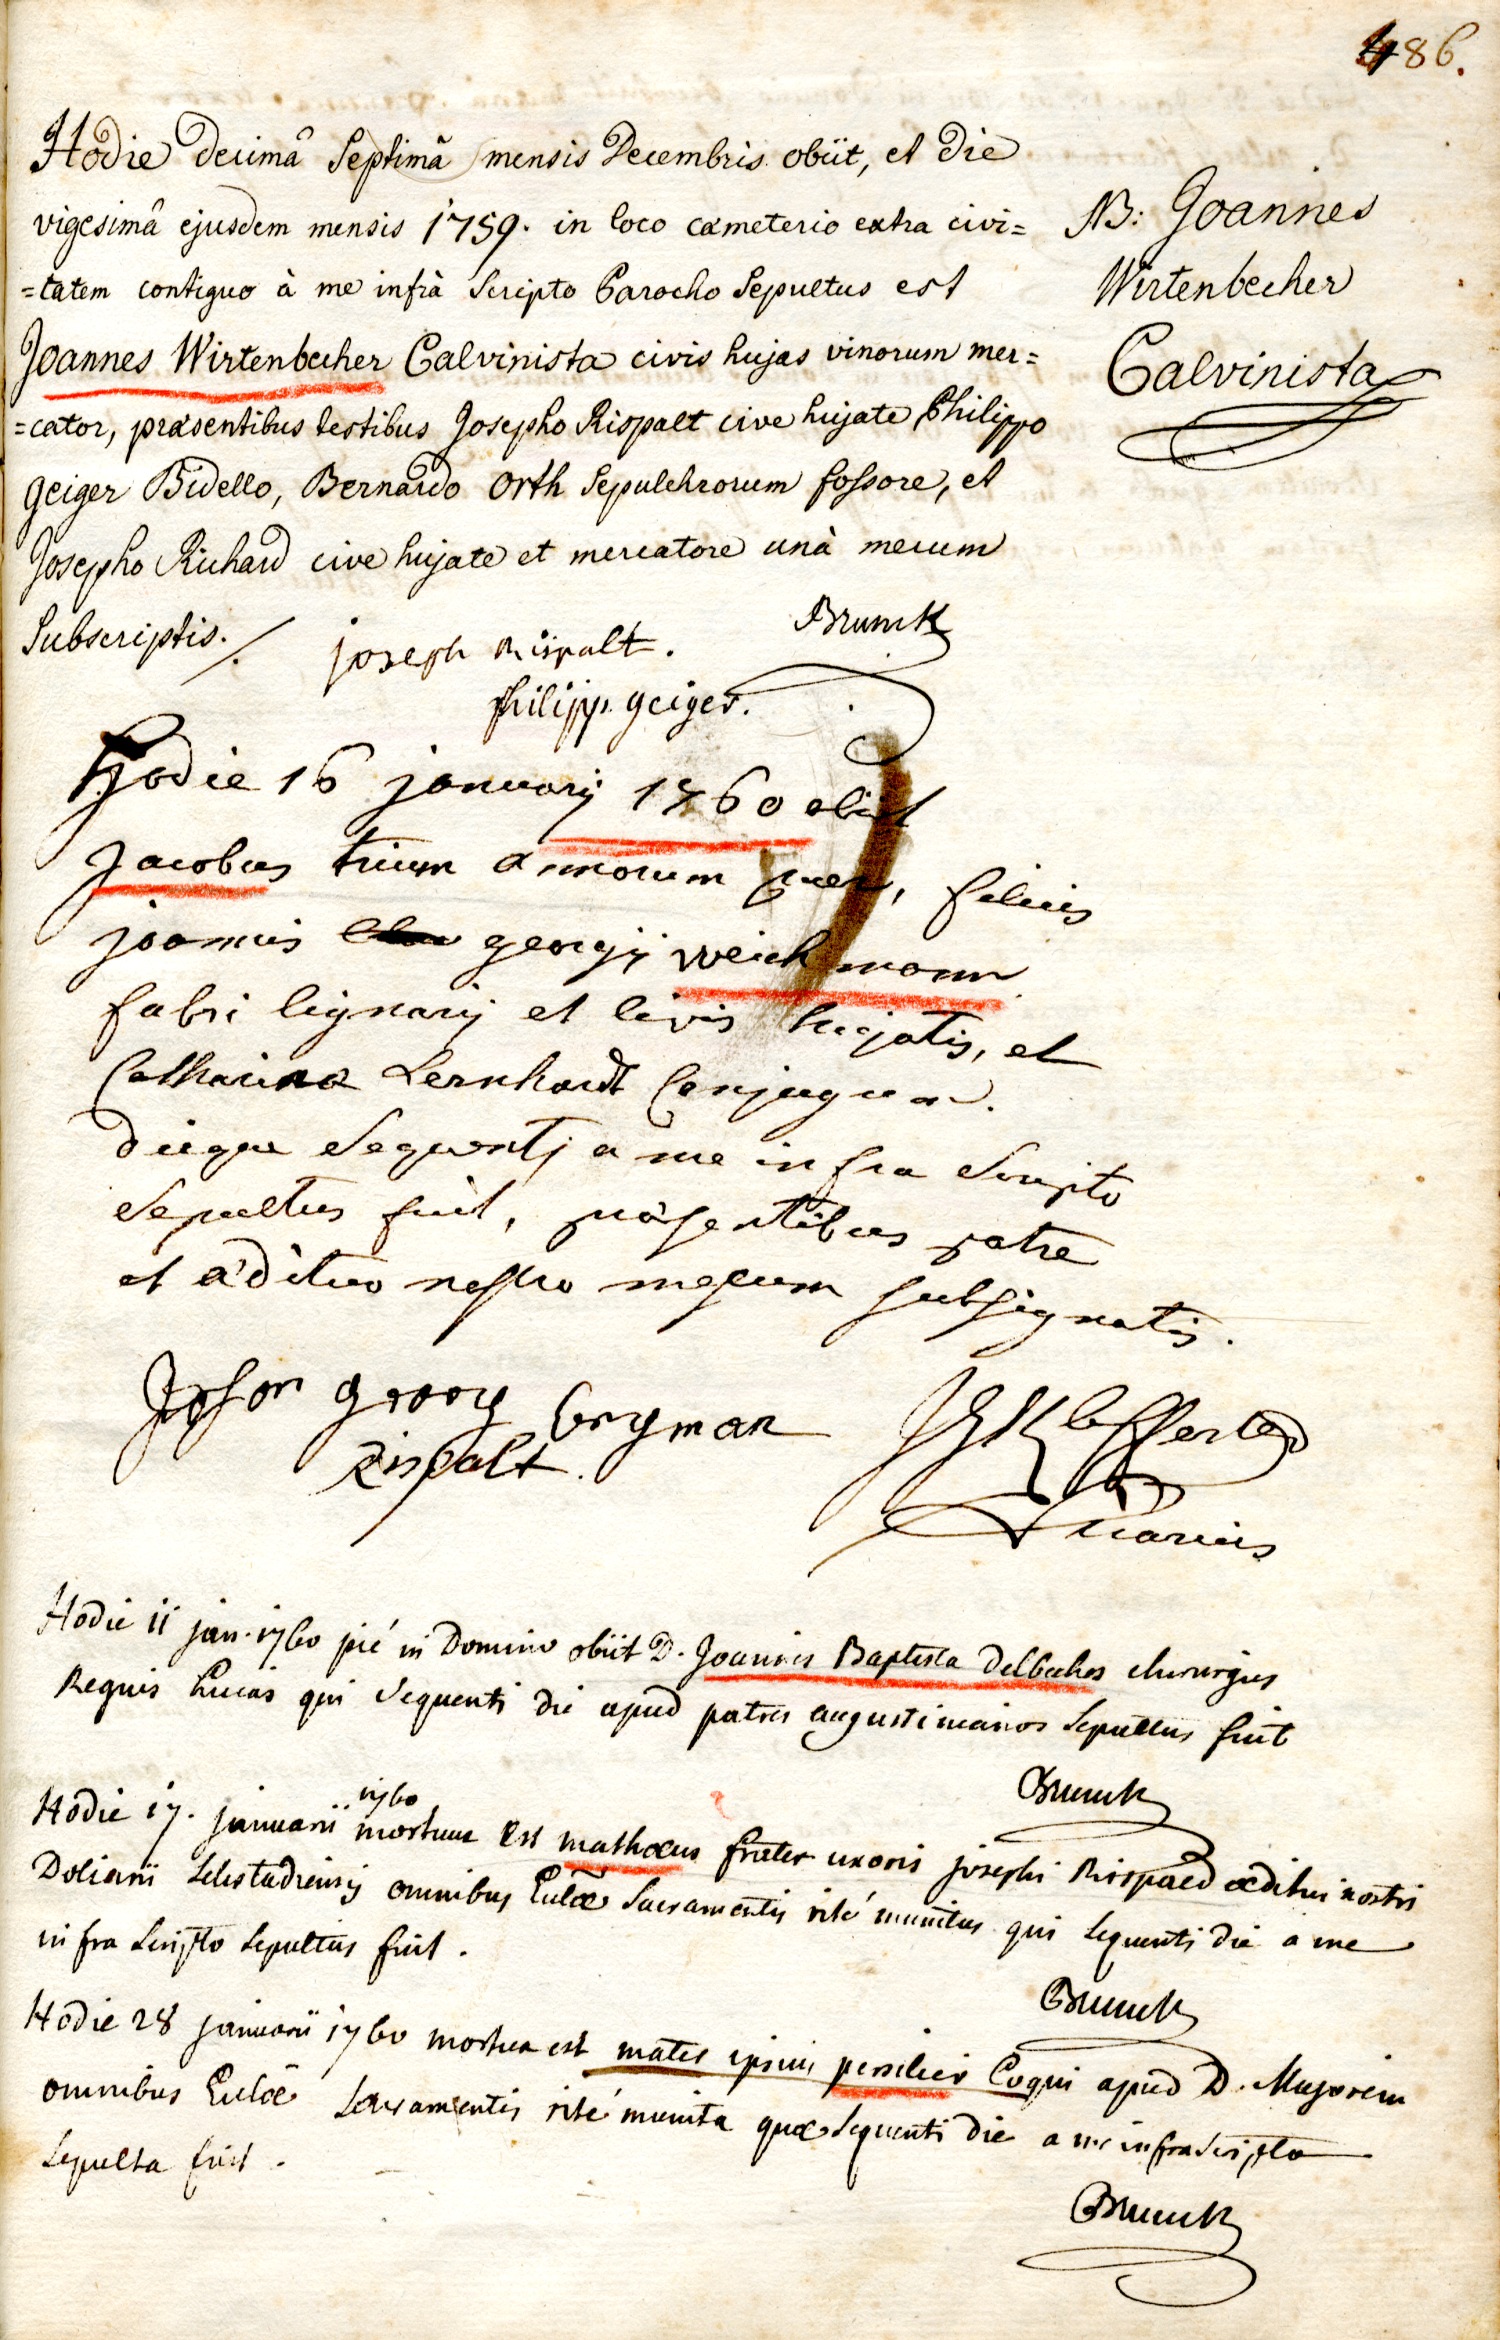 486.
Hodie decimâ Septimâ mensis Decembris obiit, et die
vigesimâ ejusdem mensis 1759. in loco cœmeterio extra civi=
=tatem contiguo à me infrà Scripto Parocho Sepultus est
Joannes Wirtenbecher Calvinista civis hujas vinorum mer=
=cator, præsentibus testibus Josepho Rispalt cive hujate Philippo
geiger Bidello, Bernardo Orth Sepulchrorum fossore, et
Josepho Richard cive hujate et mercatore unà mecum
Subscriptis./.
NB: Joannes
Wirtenbecher
Calvinista
Brunck
joseph Rispalt.
philipp geiger.
Hodie 16 januarij 1760 obiit
Jacobus trium annorum puer, filius
joannis georgij weichmann
fabri lignarij et civis hujatis, et
Catharina Lernhardt Conjugum.
dieque Sequenti a me infra Scripto
Sepultus fuit, præsentibus patre
et ædituo nostro mecum subsignatis.
georg
Rispalt.
vicarius
Hodie 11 jan. 1760 pié in Domino obiit D. Joannes Baptista Delbeches chirurgus
Regius hujas qui Sequenti die apud patres augustinianos Sepultus fuit
Brunck
Hodie 17. januarii 1760 mortuus est mathæus frater uxoris josephi Rispald æditui nostri
Doliarii Selestadiensis omnibus Eclæ Sacramentis rité munitus qui Sequenti die a me
infra Scripto Sepultus fuit.
Brunck
Hodie 28 januarii 1760 mortua est mater ipsius Coqui apud D. Majorem
omnibus Eclæ Sacramentis rité munita quæ Sequenti die a me infra Scripto
Sepulta fuit.
Brunck